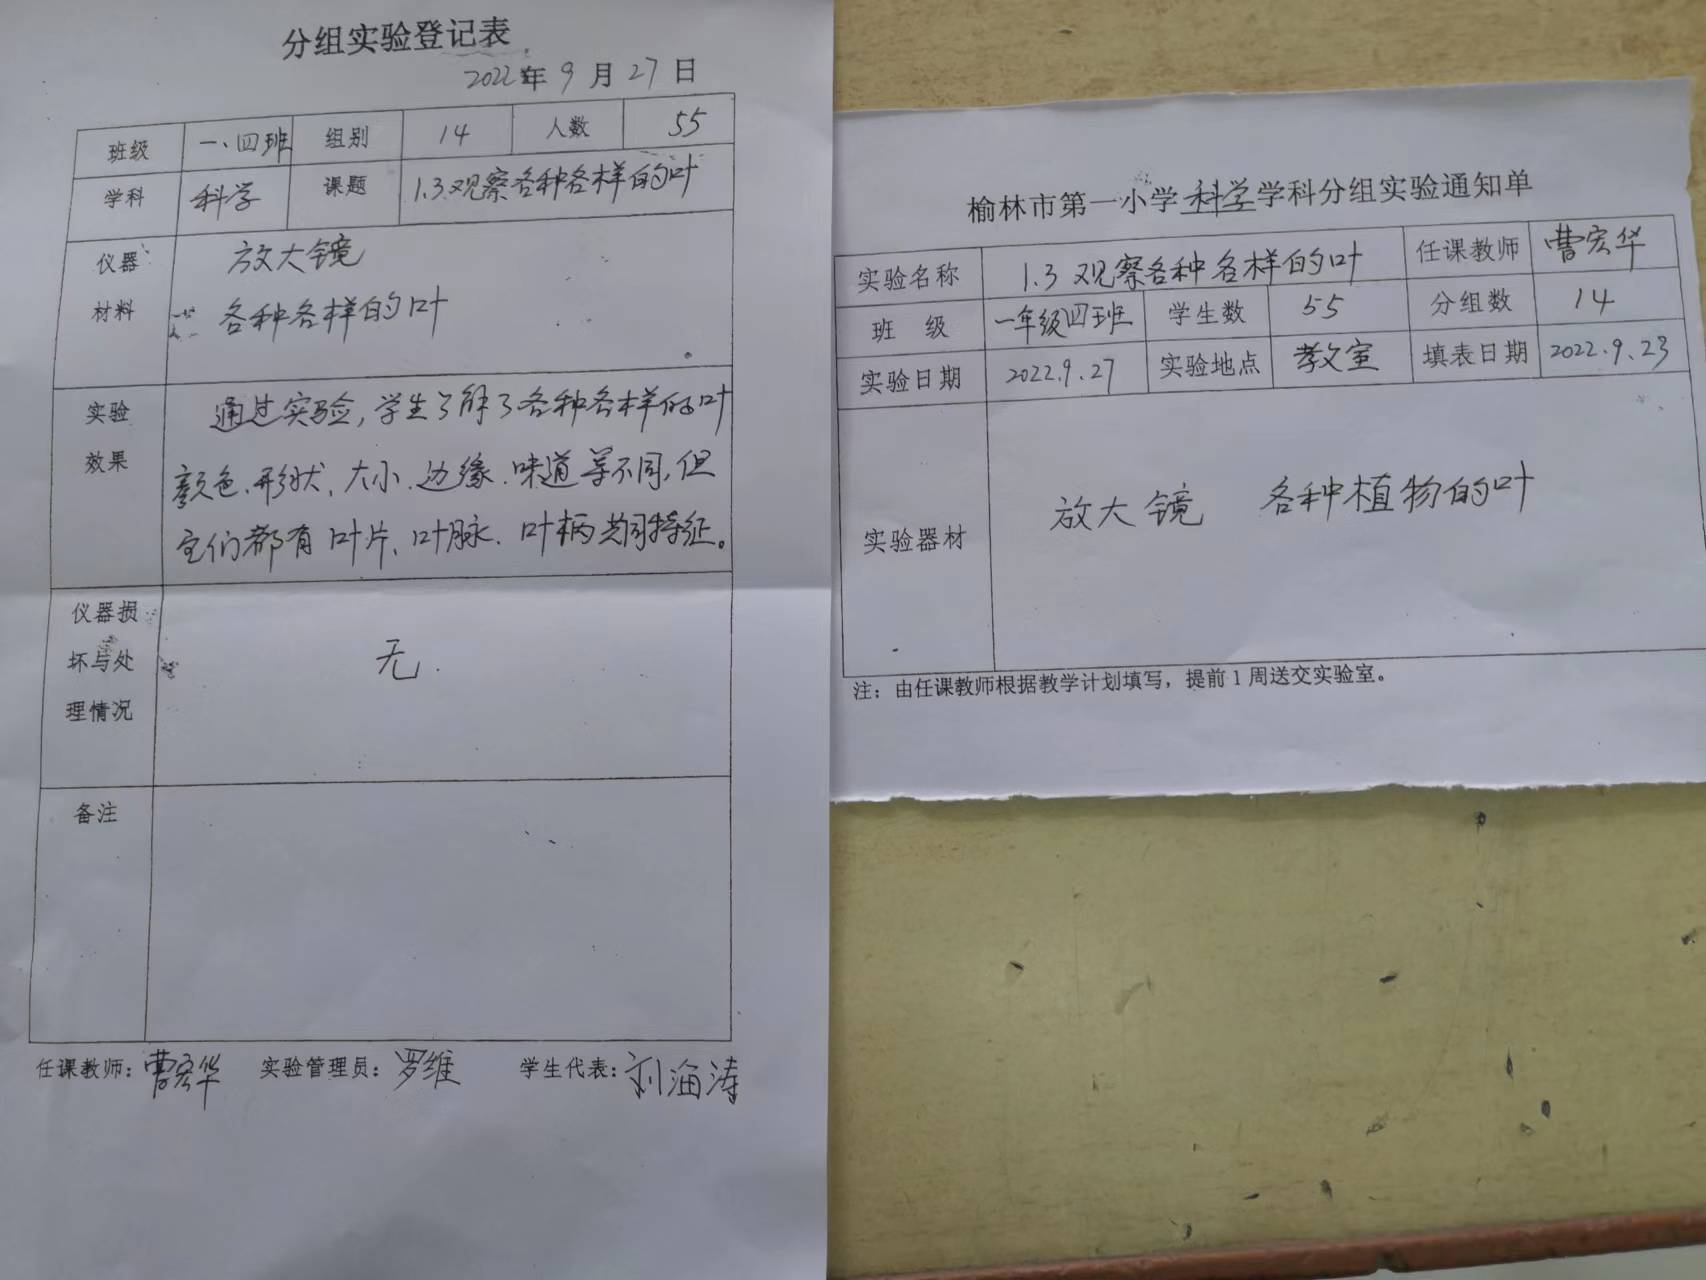 分组实验登记表
2022年9月27日
班级 一.四班 组别 14 人数 55
学科 科学 课题 1.3观察各种各样的叶
仪器 放大镜
材料 各种各样的叶
实验 通过实验,学生了解了各种各样的叶
效果 颜色、形状、大小、边缘、味道等不同,但
它们都有叶片、叶脉、叶柄共同特征。
仪器损
坏与处 无.
理情况
备注
任课教师:曹宏华 实验管理员:罗维 学生代表:刘海涛
榆林市第一小学科学学科分组实验通知单
实验名称 1.3观察各种各样的叶 任课教师 曹宏华
班 级 一年级四班 学生数 55 分组数 14
实验日期 2022.9.27 实验地点 教室 填表日期 2022.9.23
实验器材 放大镜 各种植物的叶
注:由任课教师根据教学计划填写,提前1周送交实验室。